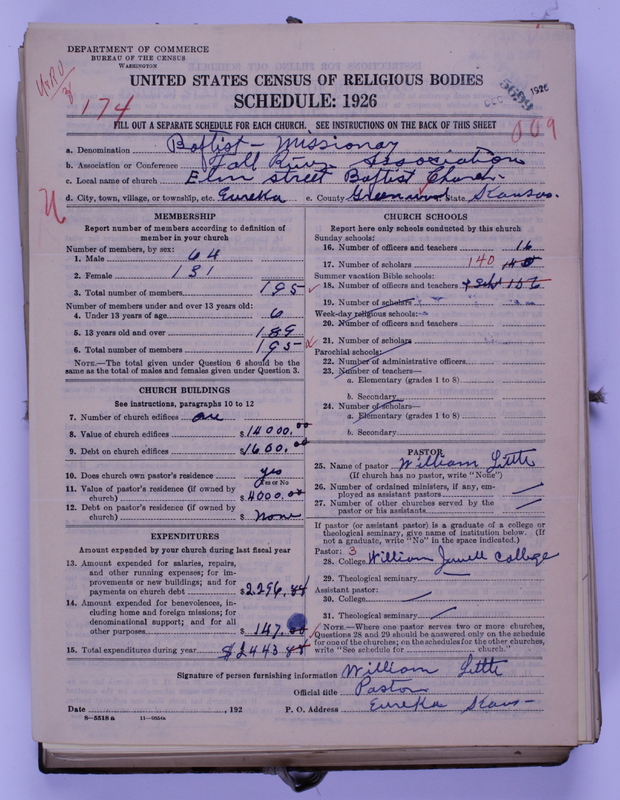 DEPARTMENT OF COMMERCE
BUREAU OF THE CENSUS
WASHINGTON
UNITED STATES CENSUS OF RELIGIOUS BODIES
SCHEDULE: 1926
DEC 1926
5699
174
009
FILL OUT A SEPARATE SCHEDULE FOR EACH CHURCH. SEE INSTRUCTIONS ON THE BACK OF THIS SHEET
a. Denomination Baptist - Missionary
b. Association or Conference Fall River Association
c. Local name of church Elm Street Baptist Church.
d. City, town, village, or township, etc. Eureka e. County Greenwood State Kansas.
MEMBERSHIP
Report number of members according to definition of
member in your church
Number of members, by sex:
1. Male 64
2. Female 131
3. Total number of members 195
Number of members under and over 13 years old:
4. Under 13 years of age 6
5. 13 years old and over 189
6. Total number of members 195
NOTE.—The total given under Question 6 should be the
same as the total of males and females given under Question 3.
CHURCH BUILDINGS
See instructions, paragraphs 10 to 12
7. Number of church edifices one
8. Value of church edifices $14000.00
9. Debt on church edifices $1600.00
10. Does church own pastor's residence yes
Yes or No
11. Value of pastor's residence (if owned by
church) $4000.00
12. Debt on pastor's residence (if owned by
church) $None
EXPENDITURES
Amount expended by your church during last fiscal year
13. Amount expended for salaries, repairs,
and other running expenses; for im-
provements or new buildings; and for
payments on church debt $2296.84
14. Amount expended for benevolences, in-
cluding home and foreign missions; for
denominational support; and for all
other purposes $147.00
15. Total expenditures during year $2443.84
CHURCH SCHOOLS
Report here only schools conducted by this church
Sunday schools:
16. Number of officers and teachers 16
17. Number of scholars 140
Summer vacation Bible schools:
18. Number of officers and teachers & Sch 156
19. Number of scholars
Week-day religious schools:
20. Number of officers and teachers
21. Number of scholars
Parochial schools:
22. Number of administrative officers
23. Number of teachers—
a. Elementary (grades 1 to 8)
b. Secondary
24. Number of scholars—
a. Elementary (grades 1 to 8)
b. Secondary
PASTOR
25. Name of pastor William Little
(If church has no pastor, write "None")
26. Number of ordained ministers, if any, em-
ployed as assistant pastors
27. Number of other churches served by the
pastor or his assistants
If pastor (or assistant pastor) is a graduate of a college or
theological seminary, give name of institution below. (If
not a graduate, write "No" in the space indicated.)
Pastor: 3
28. College William Jewell College
29. Theological seminary
Assistant pastor:
30. College
31. Theological seminary
NOTE.—Where one pastor serves two or more churches,
Questions 28 and 29 should be answered only on the schedule
for one of the churches; on the schedules for the other churches,
write "See schedule for church."
Signature of person furnishing information William Little
Official title Pastor
Date , 192 P. O. Address Eureka Kans-
8—5518 a 11—9554a